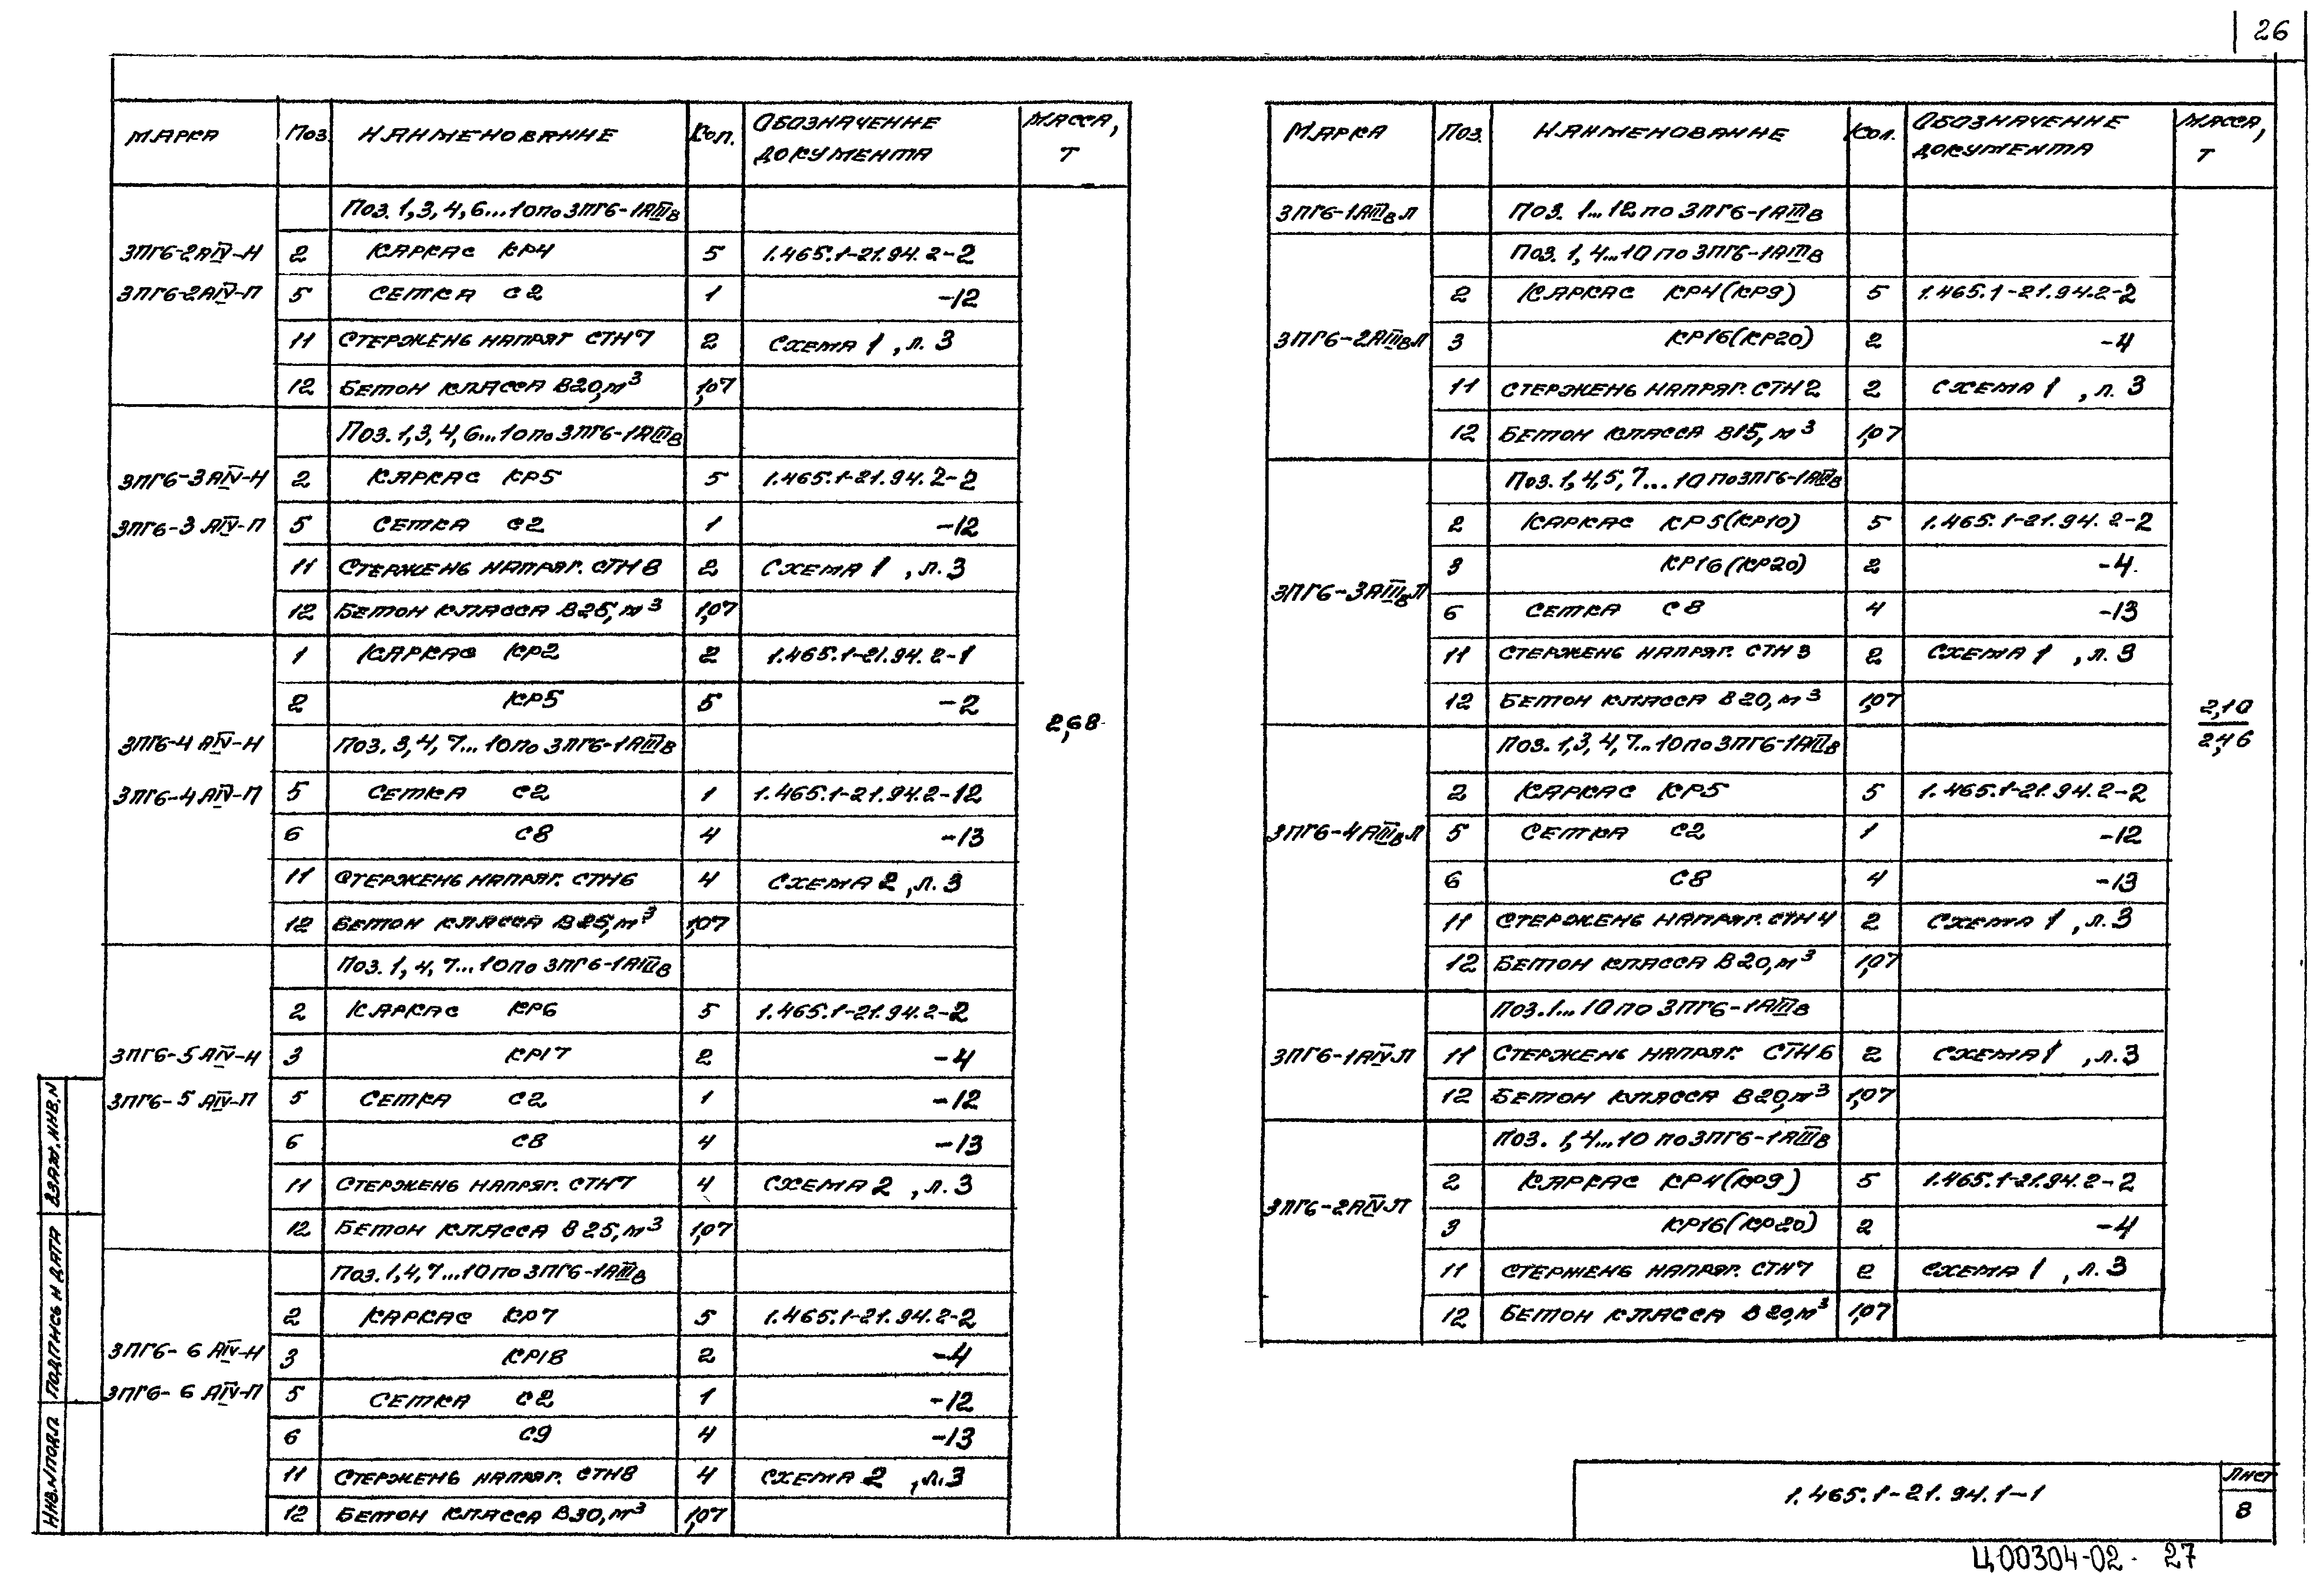 26
МАРКА Поз. НАИМЕНОВАНИЕ Кол. ОБОЗНАЧЕНИЕ ДОКУМЕНТА МАССА, Т
Поз. 1,3,4,6...10 по 3ПГ6-1АIIIв
3ПГ6-2АIV-Н 2 КАРКАС КР4 5 1.465.1-21.94.2-2
3ПГ6-2АIV-П 5 СЕТКА С2 1 -12
11 СТЕРЖЕНЬ НАПРЯГ СТН7 2 СХЕМА 1, л. 3
12 БЕТОН КЛАССА В20, м³ 1,07
Поз. 1,3,4,6...10 по 3ПГ6-1АIIIв
3ПГ6-3АIV-Н 2 КАРКАС КР5 5 1.465.1-21.94.2-2
3ПГ6-3АIV-П 5 СЕТКА С2 1 -12
11 СТЕРЖЕНЬ НАПРЯГ. СТН8 2 СХЕМА 1, л. 3
12 БЕТОН КЛАССА В25, м³ 1,07
1 КАРКАС КР2 2 1.465.1-21.94.2-1
2 КР5 5 -2
2,68
3ПГ6-4АIV-Н Поз. 3,4,7...10 по 3ПГ6-1АIIIв
3ПГ6-4АIV-П 5 СЕТКА С2 1 1.465.1-21.94.2-12
6 С8 4 -13
11 СТЕРЖЕНЬ НАПРЯГ. СТН6 4 СХЕМА 2, л. 3
12 БЕТОН КЛАССА В25, м³ 1,07
Поз. 1,4,7...10 по 3ПГ6-1АIIIв
2 КАРКАС КР6 5 1.465.1-21.94.2-2
3ПГ6-5АIV-Н 3 КР17 2 -4
3ПГ6-5АIV-П 5 СЕТКА С2 1 -12
6 С8 4 -13
11 СТЕРЖЕНЬ НАПРЯГ. СТН7 4 СХЕМА 2, л. 3
12 БЕТОН КЛАССА В25, м³ 1,07
Поз. 1,4,7...10 по 3ПГ6-1АIIIв
2 КАРКАС КР7 5 1.465.1-21.94.2-2
3ПГ6-6АIV-Н 3 КР18 2 -4
3ПГ6-6АIV-П 5 СЕТКА С2 1 -12
6 С9 4 -13
11 СТЕРЖЕНЬ НАПРЯГ. СТН8 4 СХЕМА 2, л. 3
12 БЕТОН КЛАССА В30, м³ 1,07
МАРКА Поз. НАИМЕНОВАНИЕ Кол. ОБОЗНАЧЕНИЕ ДОКУМЕНТА МАССА, Т
3ПГ6-1АIIIвЛ Поз. 1...12 по 3ПГ6-1АIIIв
Поз. 1,4...10 по 3ПГ6-1АIIIв
2 КАРКАС КР4(КР9) 5 1.465.1-21.94.2-2
3ПГ6-2АIIIвЛ 3 КР16(КР20) 2 -4
11 СТЕРЖЕНЬ НАПРЯГ. СТН2 2 СХЕМА 1, л. 3
12 БЕТОН КЛАССА В15, м³ 1,07
Поз. 1,4,5,7...10 по 3ПГ6-1АIIIв
2 КАРКАС КР5(КР10) 5 1.465.1-21.94.2-2
3 КР16(КР20) 2 -4
3ПГ6-3АIIIвЛ
6 СЕТКА С8 4 -13
11 СТЕРЖЕНЬ НАПРЯГ. СТН3 2 СХЕМА 1, л. 3
12 БЕТОН КЛАССА В20, м³ 1,07
2,10
2,46
Поз. 1,3,4,7...10 по 3ПГ6-1АIIIв
2 КАРКАС КР5 5 1.465.1-21.94.2-2
3ПГ6-4АIIIвЛ 5 СЕТКА С2 1 -12
6 С8 4 -13
11 СТЕРЖЕНЬ НАПРЯГ. СТН4 2 СХЕМА 1, л. 3
12 БЕТОН КЛАССА В20, м³ 1,07
Поз. 1...10 по 3ПГ6-1АIIIв
3ПГ6-1АIVЛ 11 СТЕРЖЕНЬ НАПРЯГ. СТН6 2 СХЕМА 1, л. 3
12 БЕТОН КЛАССА В20, м³ 1,07
Поз. 1,4...10 по 3ПГ6-1АIIIв
2 КАРКАС КР4(КР9) 5 1.465.1-21.94.2-2
3ПГ6-2АIVЛ
3 КР16(КР20) 2 -4
11 СТЕРЖЕНЬ НАПРЯГ. СТН7 2 СХЕМА 1, л. 3
12 БЕТОН КЛАССА В20, м³ 1,07
ИНВ.N ПОДЛ ПОДПИСЬ И ДАТА ВЗАМ. ИНВ.N
1.465.1-21.94.1-1
ЛИСТ
8
Ц00304-02 27